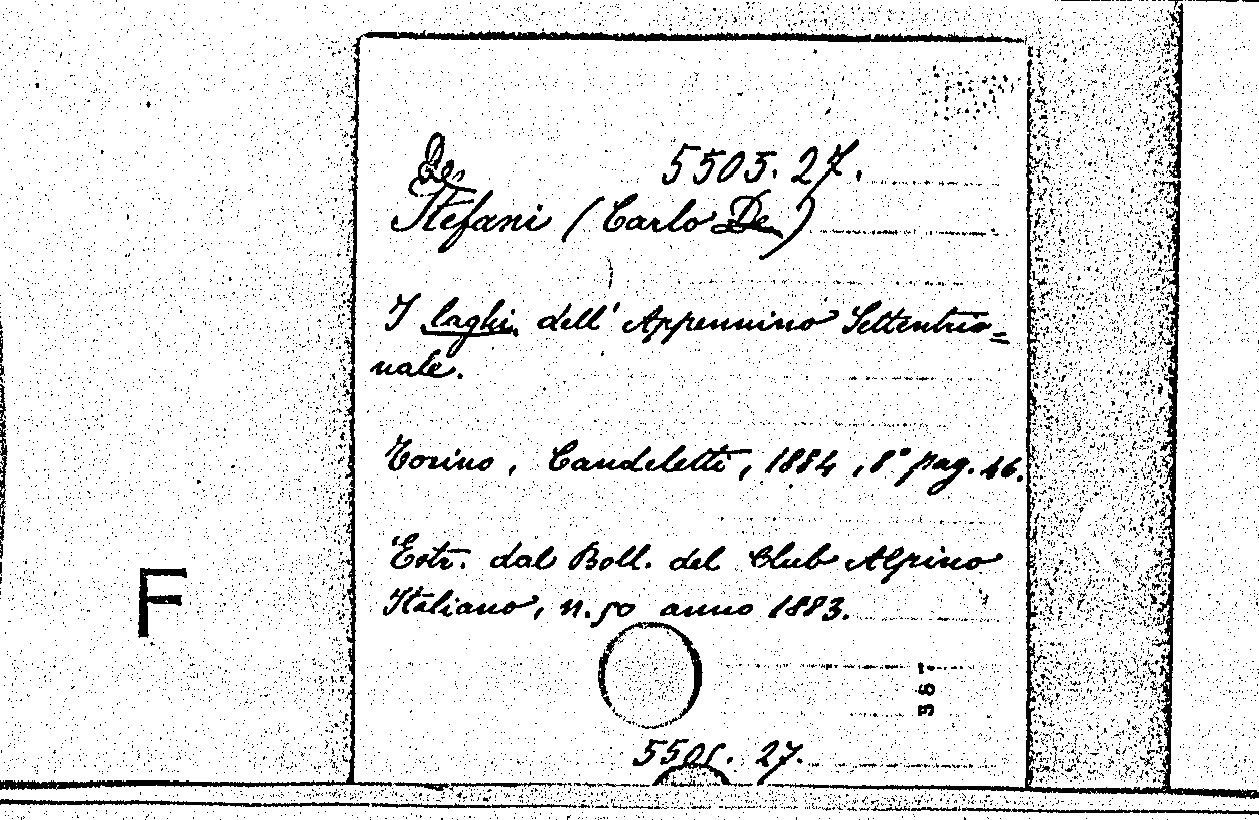 De 5505.27.
Stefani (Carlo De)
I laghi dell' Appennino Settentrio=
nale.
Torino, Candeletti, 1884, 8° pag. 46.
Estr. dal Boll. del Club Alpino
Italiano, n. 50 anno 1883.
F
367
5505. 27.